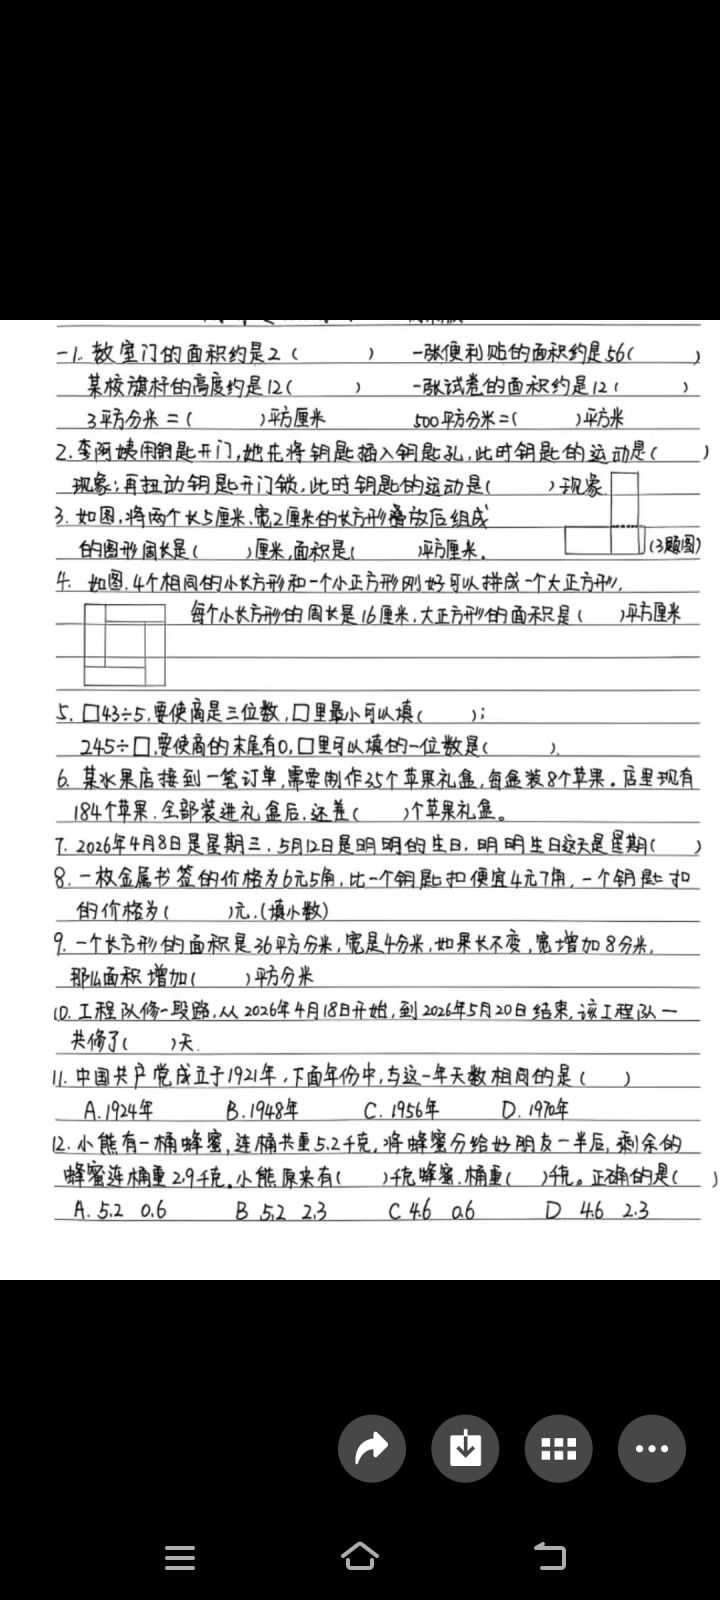 一1. 教室门的面积约是2（ ） 一张便利贴的面积约是56（ ）
某校旗杆的高度约是12（ ） 一张试卷的面积约是12（ ）
3平方分米＝（ ）平方厘米 500平方分米＝（ ）平方米
2. 李阿姨用钥匙开门,她先将钥匙插入钥匙孔,此时钥匙的运动是（ ）
现象；再扭动钥匙开门锁,此时钥匙的运动是（ ）现象.
3. 如图,将两个长5厘米、宽2厘米的长方形叠放后组成
的图形周长是（ ）厘米,面积是（ ）平方厘米.
(3题图)
4. 如图,4个相同的小长方形和一个小正方形刚好可以拼成一个大正方形.
每个小长方形的周长是16厘米,大正方形的面积是（ ）平方厘米
5. □43÷5,要使商是三位数,□里最小可以填（ ）；
245÷□,要使商的末尾有0,□里可以填的一位数是（ ）.
6. 某水果店接到一笔订单,需要制作35个苹果礼盒,每盒装8个苹果。店里现有
184个苹果.全部装进礼盒后,还差（ ）个苹果礼盒。
7. 2026年4月8日是星期三,5月12日是明明的生日,明明生日这天是星期（ ）
8. 一枚金属书签的价格为6元5角,比一个钥匙扣便宜4元7角,一个钥匙扣
的价格为（ ）元.(填小数)
9. 一个长方形的面积是36平方分米,宽是4分米,如果长不变,宽增加8分米,
那么面积增加（ ）平方分米
10. 工程队修一段路,从2026年4月18日开始,到2026年5月20日结束,该工程队一
共修了（ ）天.
11. 中国共产党成立于1921年,下面年份中,与这一年天数相同的是（ ）
A.1924年 B.1948年 C.1956年 D.1970年
12. 小熊有一桶蜂蜜,连桶共重5.2千克,将蜂蜜分给好朋友一半后,剩余的
蜂蜜连桶重2.9千克。小熊原来有（ ）千克蜂蜜.桶重（ ）千克。正确的是（ ）
A. 5.2 0.6 B 5.2 2.3 C 4.6 0.6 D 4.6 2.3